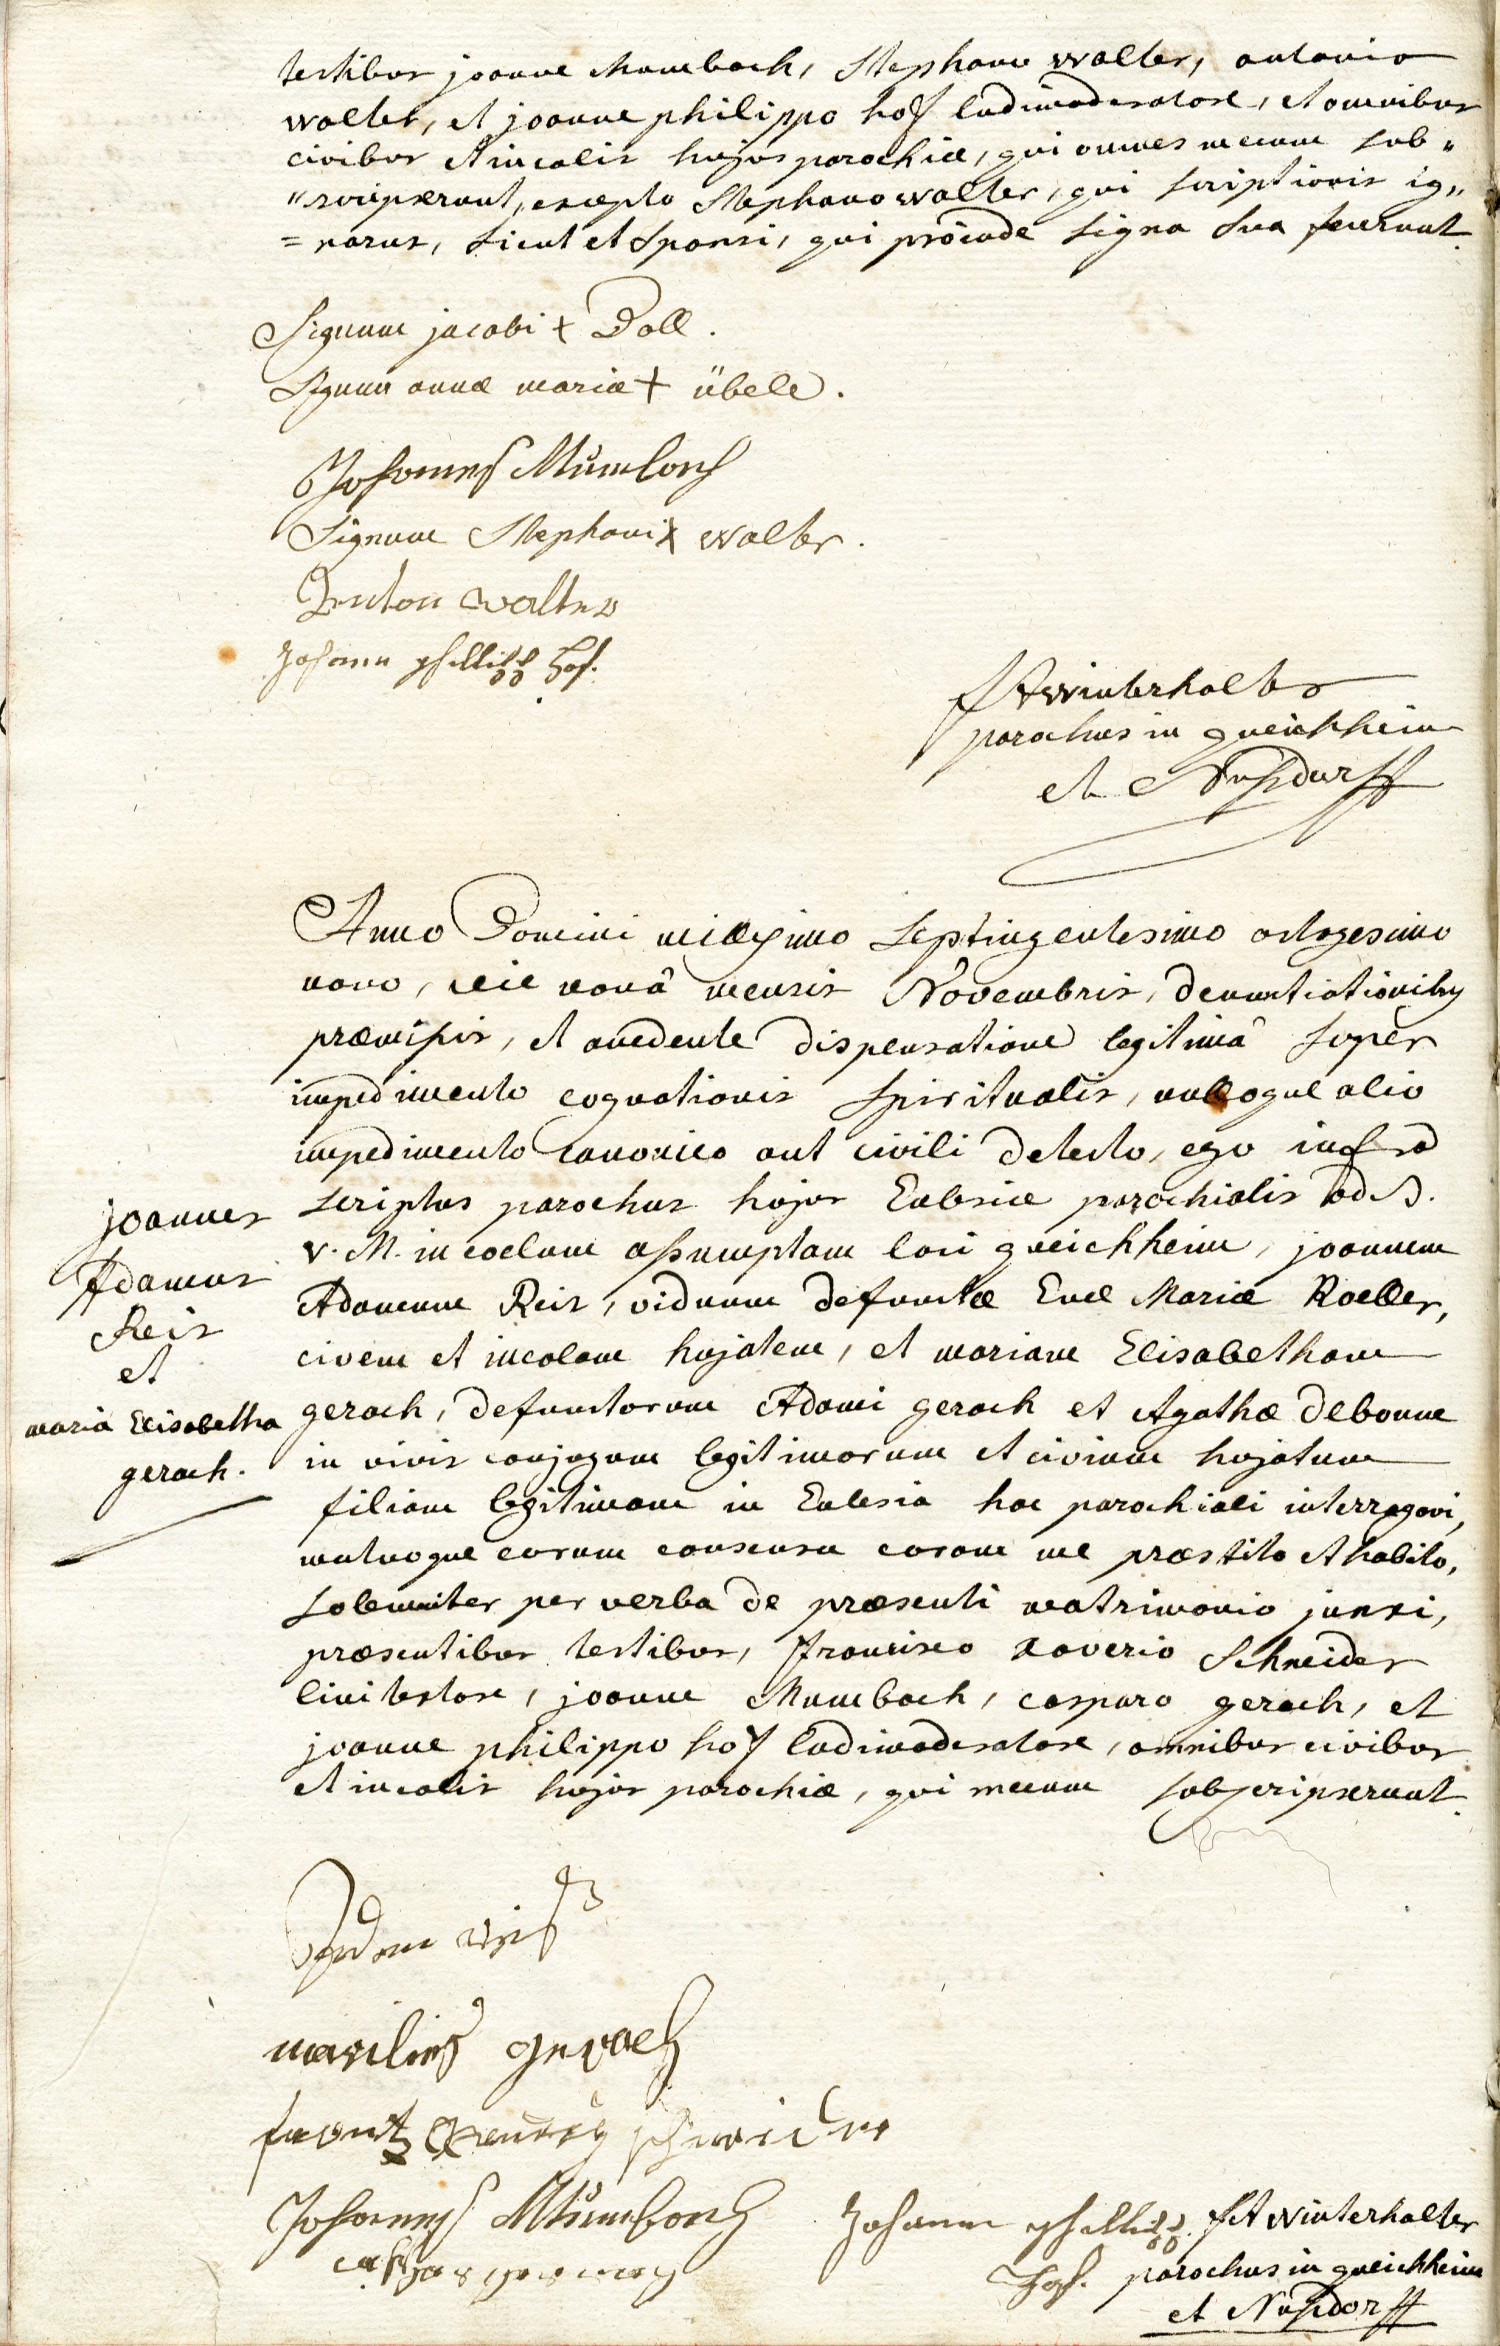 testibus joanne Mumbach, Stephano walter, antonio
walter, et joanne philippo hoff ludimoderatore, et omnibus
civibus et incolis hujus parochiæ, qui omnes mecum sub„
„scripserunt, excepto Stephano walter, qui scriptionis ig„
=narus, sicut et sponsi, qui proinde signa sua fecerunt.
Signum jacobi + Doll.
Signum annæ mariæ + übele.
Johannes Mumbach
Signum Stephani x walter.
Anton walter
Johann phillipp Hof.
FA winterhalter
parochus in queichheim
et Nußdorff
Anno Domini millesimo septingentesimo octogesimo
nono, die nonâ mensis Novembris, denuntiationibus
præmissis, et accedente dispensatione legitimâ super
impedimento cognationis spiritualis, nulloque alio
impedimento canonico aut civili detecto, ego infra
scriptus parochus hujus Ecclesiæ parochialis ad B.
v. M. in coelum assumptam loci queichheim, joannem
Adamum Reis, viduum defunctæ Evæ Mariæ Roeller,
civem et incolam hujatem, et mariam Elisabetham
gerach, defunctorum Adami gerach et Agathæ debonne
in vivis conjugum legitimorum et civium hujatum
filiam legitimam in Ecclesia hac parochiali interrogavi,
mutuoque eorum consensu coram me præstito et habito,
solemniter per verba de præsenti matrimonio junxi,
præsentibus testibus, Francisco xaverio Schneider
civi testore, joanne Mumbach, casparo gerach, et
joanne philippo hoff ludimoderatore, omnibus civibus
et incolis hujus parochiæ, qui mecum subscripserunt.
joannes
Adamus
Reis
et
maria Elisabetha
gerach.
Adam reis
marilies gerach
frantz schneider
Johannes Mumbach
Johann phillipp
Hof.
FA winterhalter
parochus in queichheim
et Nußdorff